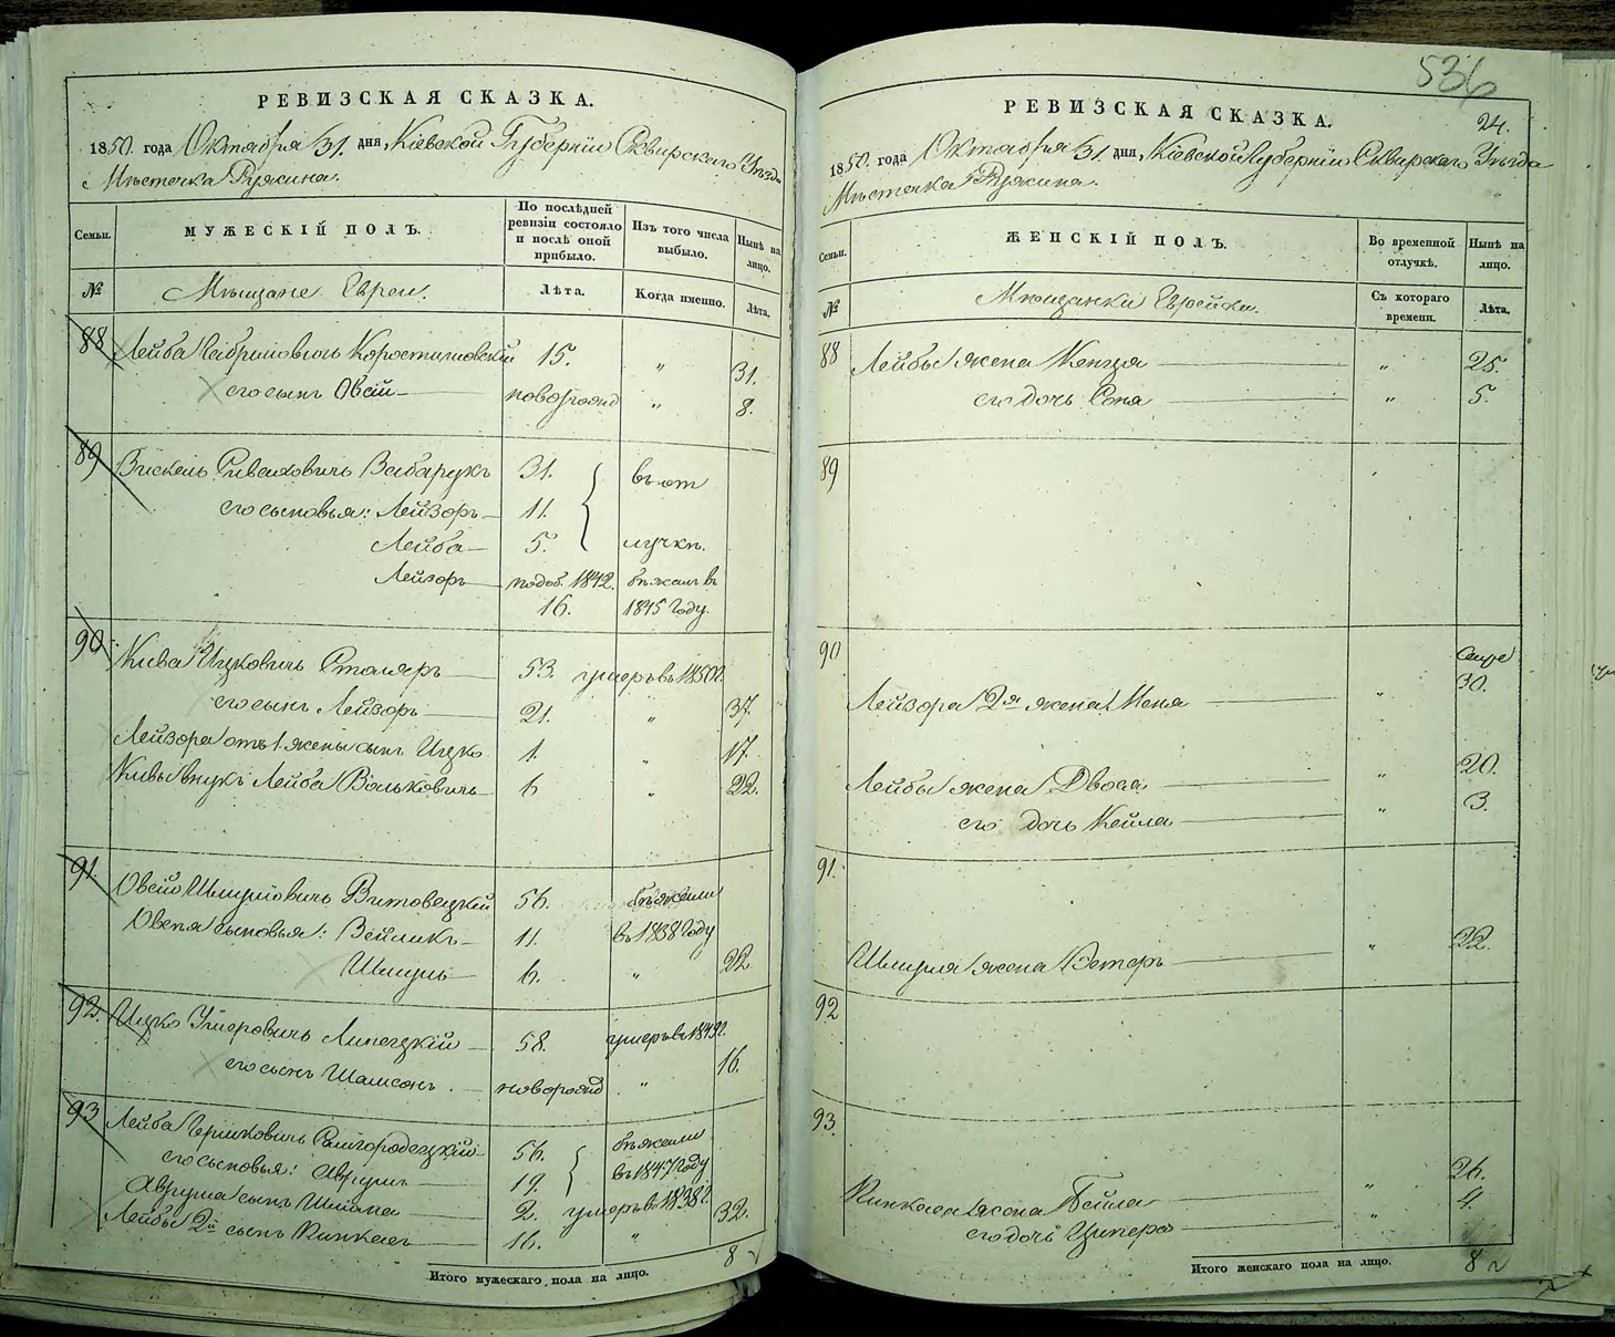 РЕВИЗСКАЯ СКАЗКА.
1850. года Октября 31. дня, Кіевской Губерніи Сквирскаго Уѣзда
Мѣстечка Ружина.
Семьи. МУЖЕСКІЙ ПОЛЪ. По послѣдней ревизіи состояло и послѣ оной прибыло. Изъ того числа выбыло. Нынѣ на лицо.
№ Мѣщане Евреи. Лѣта. Когда именно. Лѣта.
88 Лейба Коростышовскій 15. " 31.
его сынъ Овсій новорожд " 8.
89 31. въ от
его сыновья: Лейзоръ 11.
Лейба 5. лучкѣ.
Лейзоръ 1842. бѣжалъ въ
16. 1845 Году.
90 Кива Ицковичъ Столяръ 53. умеръ въ 1850г.
его сынъ Лейзоръ 21. " 37.
Лейзора отъ 1. жены сынъ Ицко 1. " 17.
Кивы внукъ Лейба Вольковичъ 6 " 22.
91. Овсій Шмулёвичъ Витовецкій 56. бѣжали
Овсея сыновья: Вейликъ 11. въ 1838 Году
Шмуль 6. " 22.
92. Ицко Липецкій 58. умеръ въ
его сынъ Шамсонъ. новорожд " 16.
93 Лейба Гершковичъ Самгородецкій 56. бѣжали
его сыновья: Аврумъ 19. въ 1847 Году
Аврума сынъ 2. умеръ въ 1838г.
Лейбы 2й сынъ Пинкасъ 16. " 32.
Итого мужескаго пола на лицо. 8
536
24.
РЕВИЗСКАЯ СКАЗКА.
1850. года Октября 31. дня, Кіевской Губерніи Сквирскаго Уѣзда
Мѣстечка Ружина.
Семьи. ЖЕНСКІЙ ПОЛЪ. Во временной отлучкѣ. Нынѣ на лицо.
№ Мѣщанки Еврейки. Съ котораго времени. Лѣта.
88 Лейбы жена " 25.
его дочь Соня " 5.
89
90
Лейзора 2я жена " 30.
Лейбы жена Двося " 20.
его дочь Кейла " 3.
91.
Шмуля жена Эстеръ " 22.
92
93.
Пинкаса жена Бейла " 26.
его дочь Ципера " 4.
Итого женскаго пола на лицо. 8